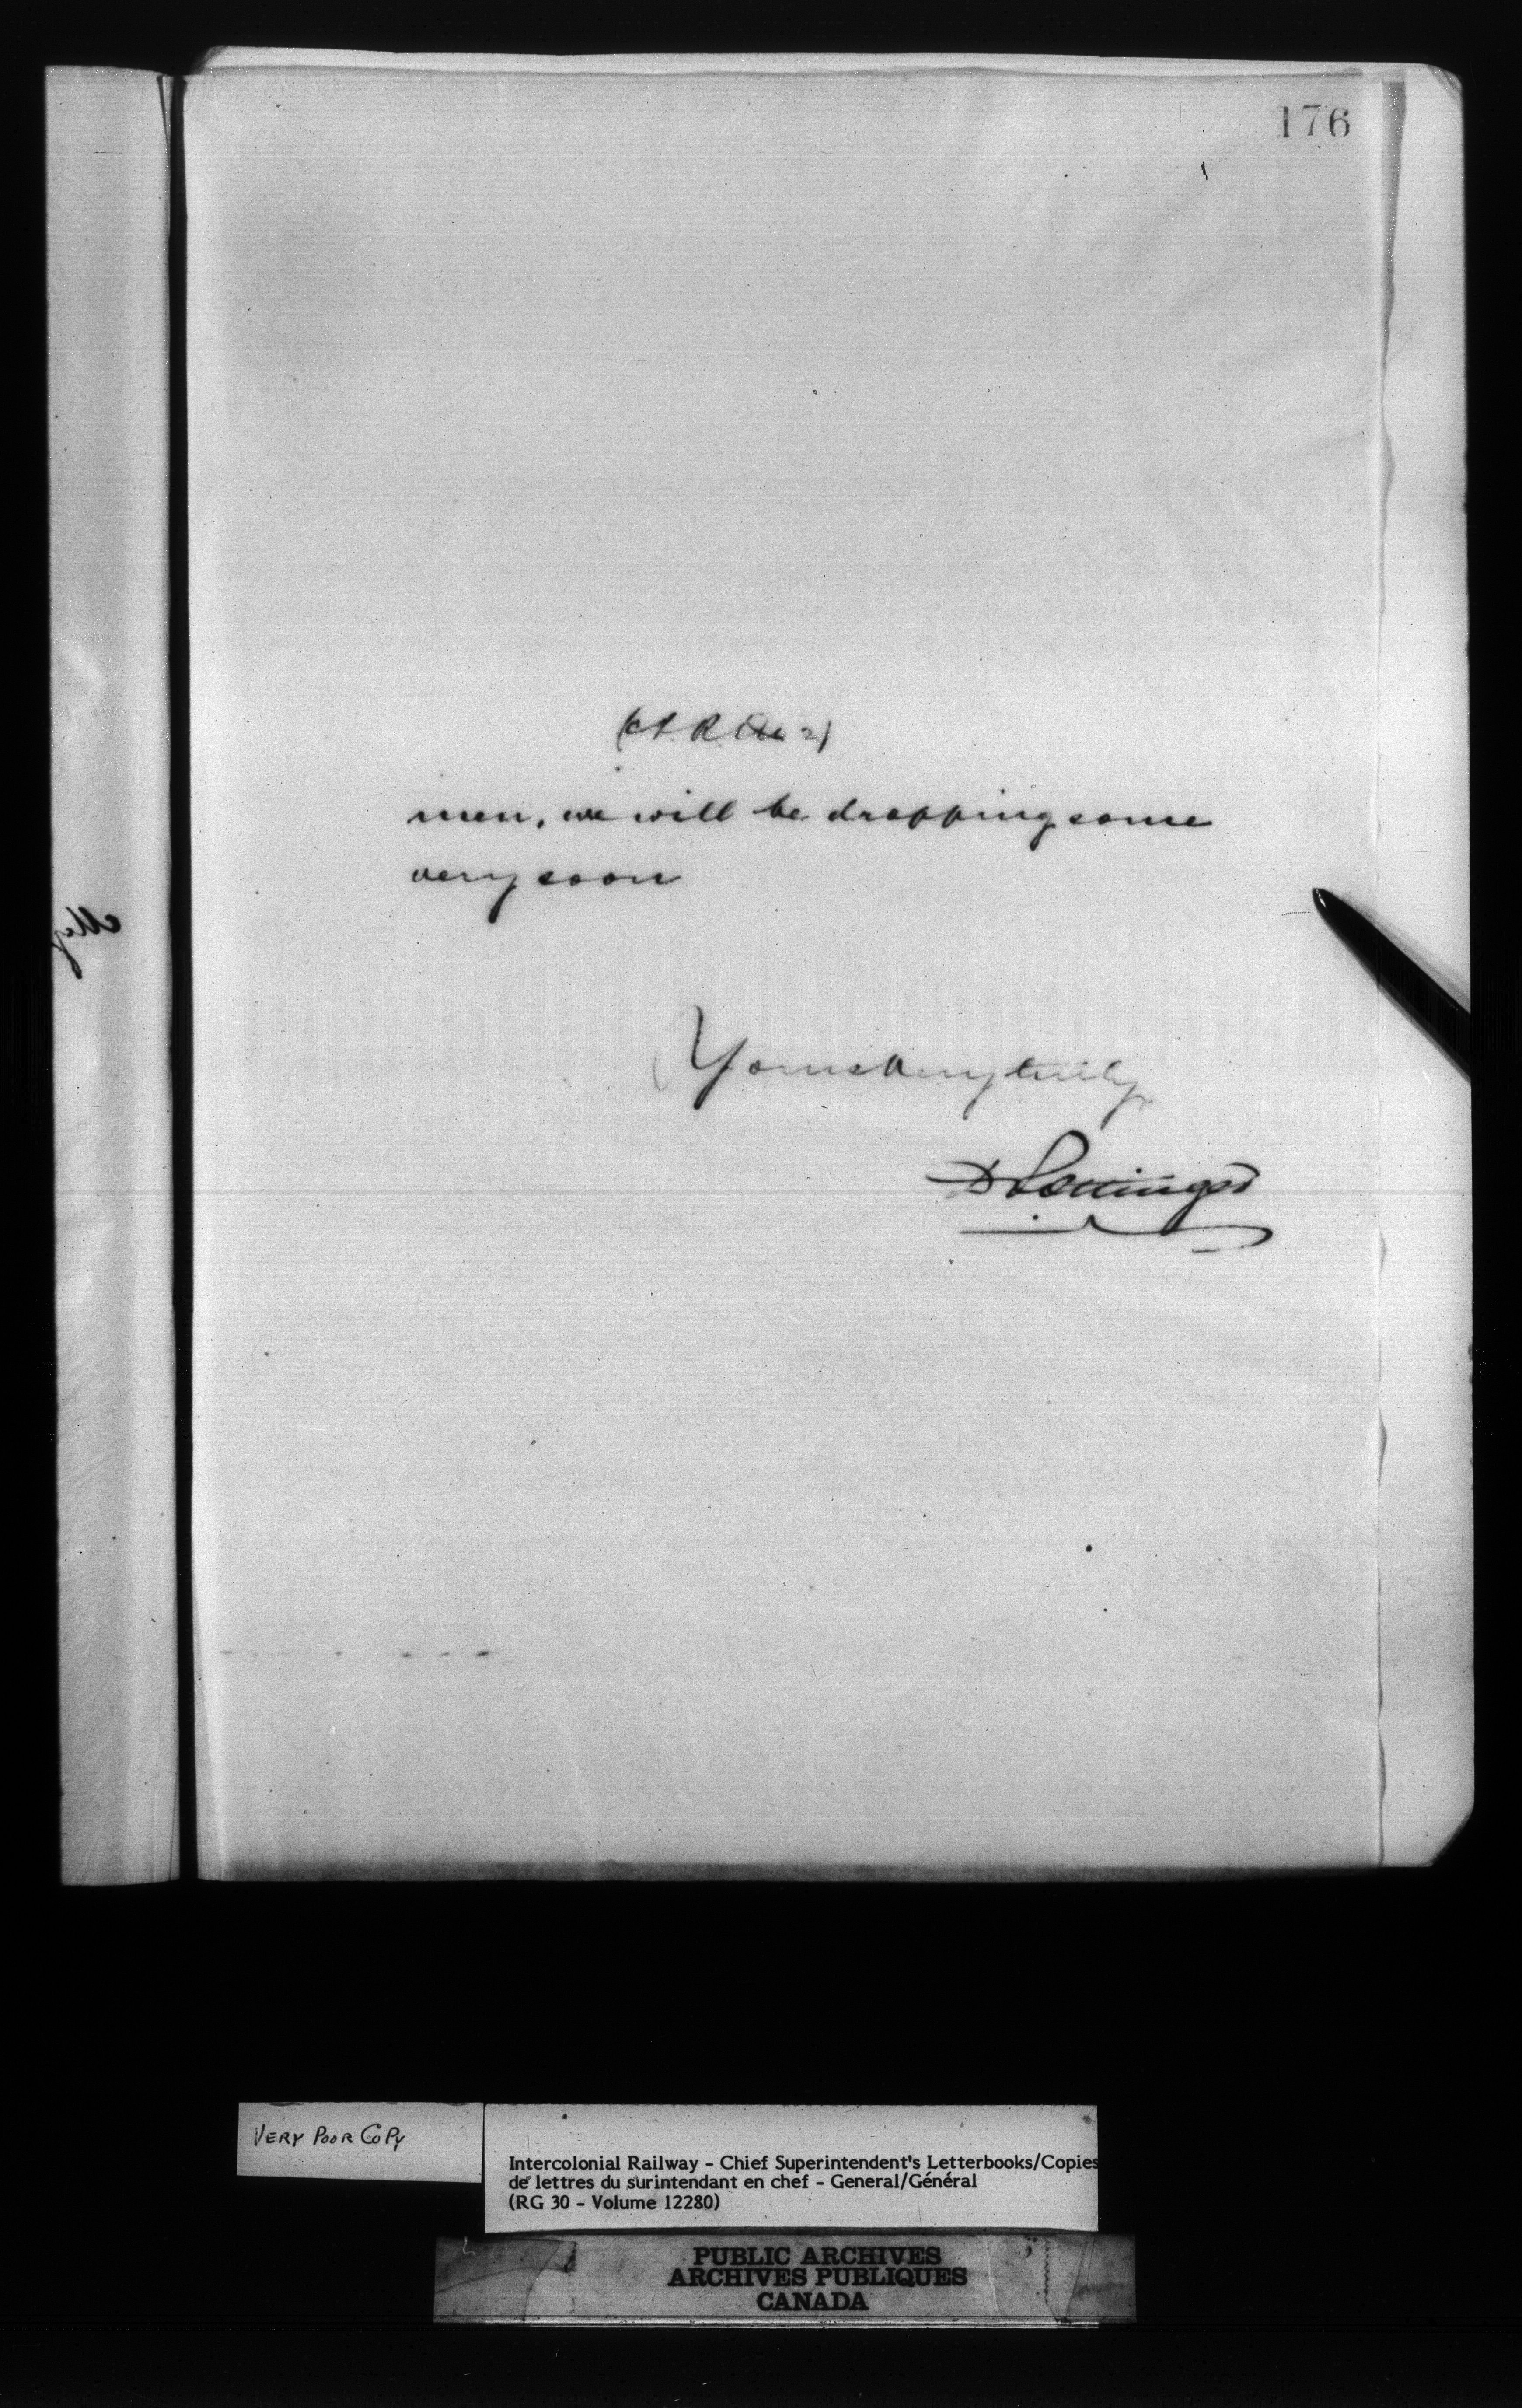 176
men, we will be dropping some
very soon
Yours very truly
D Pottinger
VERY POOR COPY
Intercolonial Railway - Chief Superintendent's Letterbooks/Copies
de lettres du surintendant en chef - General/Général
(RG 30 - Volume 12280)
PUBLIC ARCHIVES
ARCHIVES PUBLIQUES
CANADA